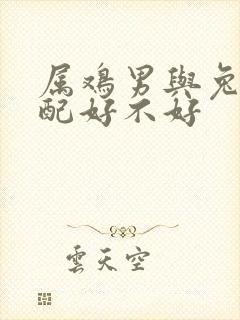 属鸡男與兔
配好不好
雲天空